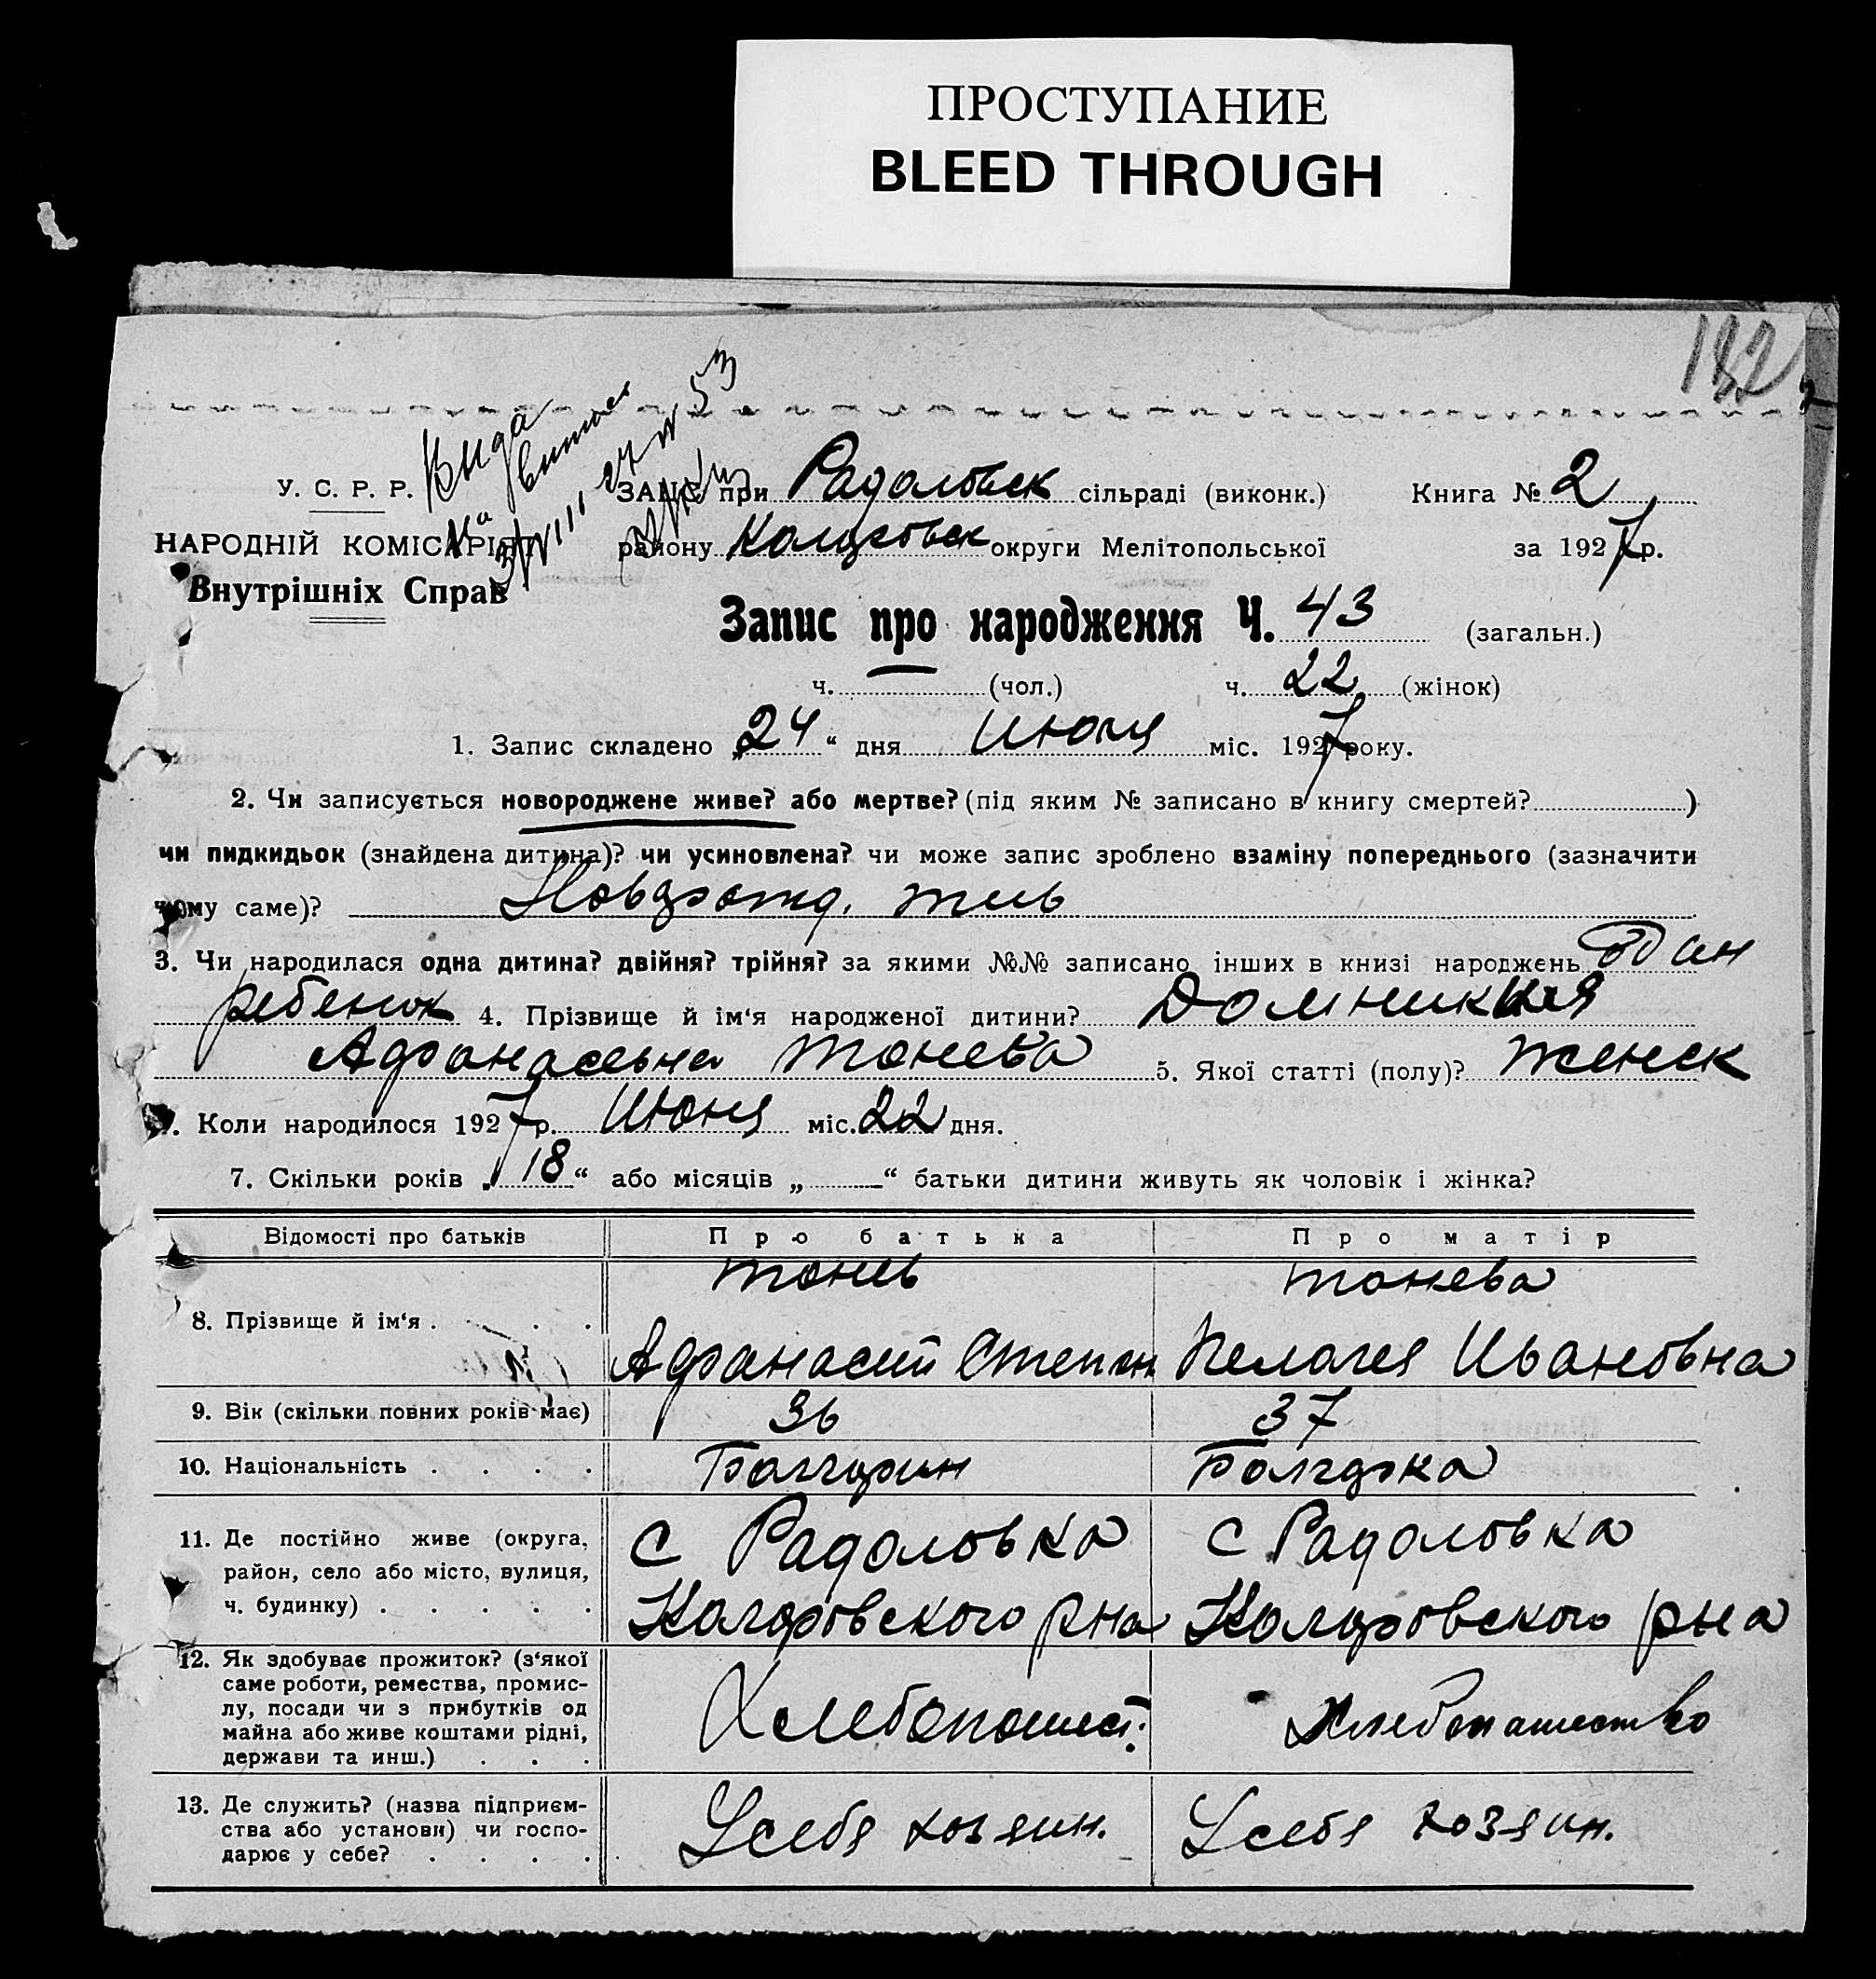 ПРОСТУПАНИЕ
BLEED THROUGH
132
У. С. Р. Р.
НАРОДНІЙ КОМІСАРІЯТ
Внутрішніх Справ
ЗАПИС при Радоловск сільраді (виконк.) Книга № 2
району Коларовск округи Мелітопольської за 1927 р.
Запис про народження Ч. 43 (загальн.)
ч. (чол.) ч. 22 (жінок)
1. Запис складено „24“ дня Июня міс. 1927 року.
2. Чи записується новороджене живе? або мертве? (під яким № записано в книгу смертей? )
чи пидкидьок (знайдена дитина)? чи усиновлена? чи може запис зроблено взаміну попереднього (зазначити
чому саме)?Новорожд. жив
3. Чи народилася одна дитина? двійня? трійня? за якими №№ записано інших в книзі народжень один
ребенок 4. Прізвище й ім'я народженої дитини? Домникия
Афанасевна Тонева 5. Якої статті (полу)? женск
6. Коли народилося 1927 р. Июня міс. 22 дня.
7. Скільки років „18“ або місяців „ “ батьки дитини живуть як чоловік і жінка?
Відомості про батьків Про батька Про матір
8. Прізвище й ім'я . . . Тонев Тонева
Афанасий Степан. Пелагея Ивановна
9. Вік (скільки повних років має) 36 37
10. Національність . . . . Болгарин Болгарка
11. Де постійно живе (округа, район, село або місто, вулиця, ч. будинку) . . . . .
с Радоловка с Радоловка
Коларовского рна Коларовского рна
12. Як здобуває прожиток? (з'якої
саме роботи, ремества, промис-
лу, посади чи з прибутків од
майна або живе коштами рідні,
держави та инш.) . . .
Хлебопашест. Хлебопашество
13. Де служить? (назва підприєм-
ства або установи) чи госпо-
дарює у себе? . . . .
У себя хозяин. У себя хозяин.